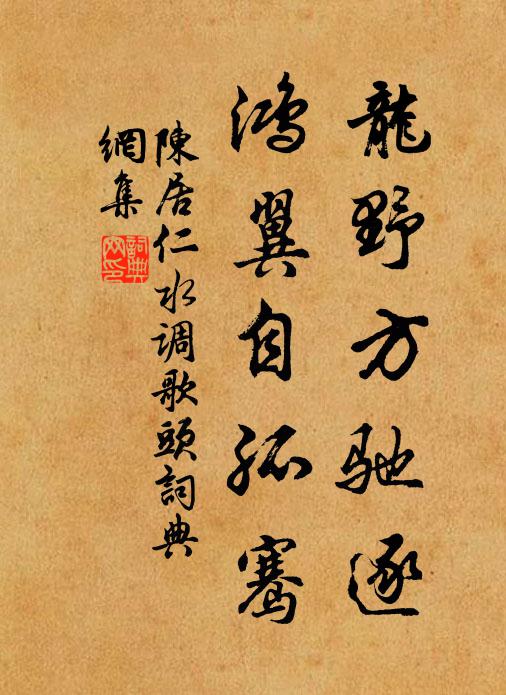 龍野方驰逐
鴻翼自孤骞
陳居仁水调歌頭詞典
網集
詞典网印